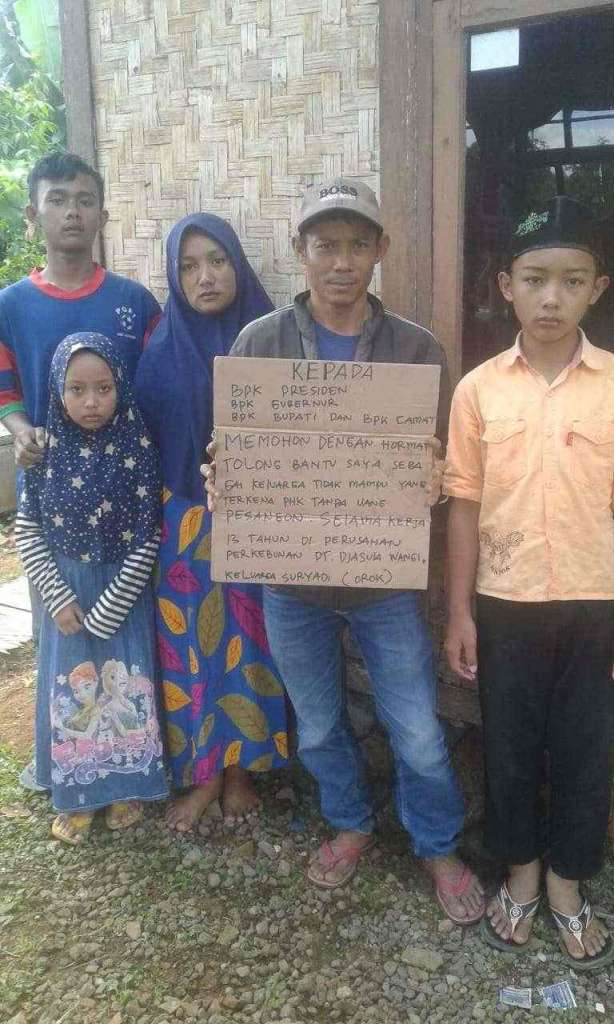 BOSS
KEPADA
BPK PRESIDEN
BPK GUBERNUR
BPK BUPATI DAN BPK CAMAT
MEMOHON DENGAN HORMAT
TOLONG BANTU SAYA SEBA
GAI KELUARGA TIDAK MAMPU YANG
TERKENA PHK TANPA UANG
PESANGON SELAMA KERJA
13 TAHUN DI PERUSAHAN
PERKEBUNAN PT. DJASULA WANGI.
KELUARGA SURYADI (OROK)